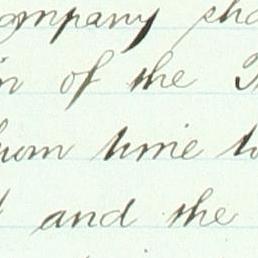 ompany sha
of the
from time to
and the